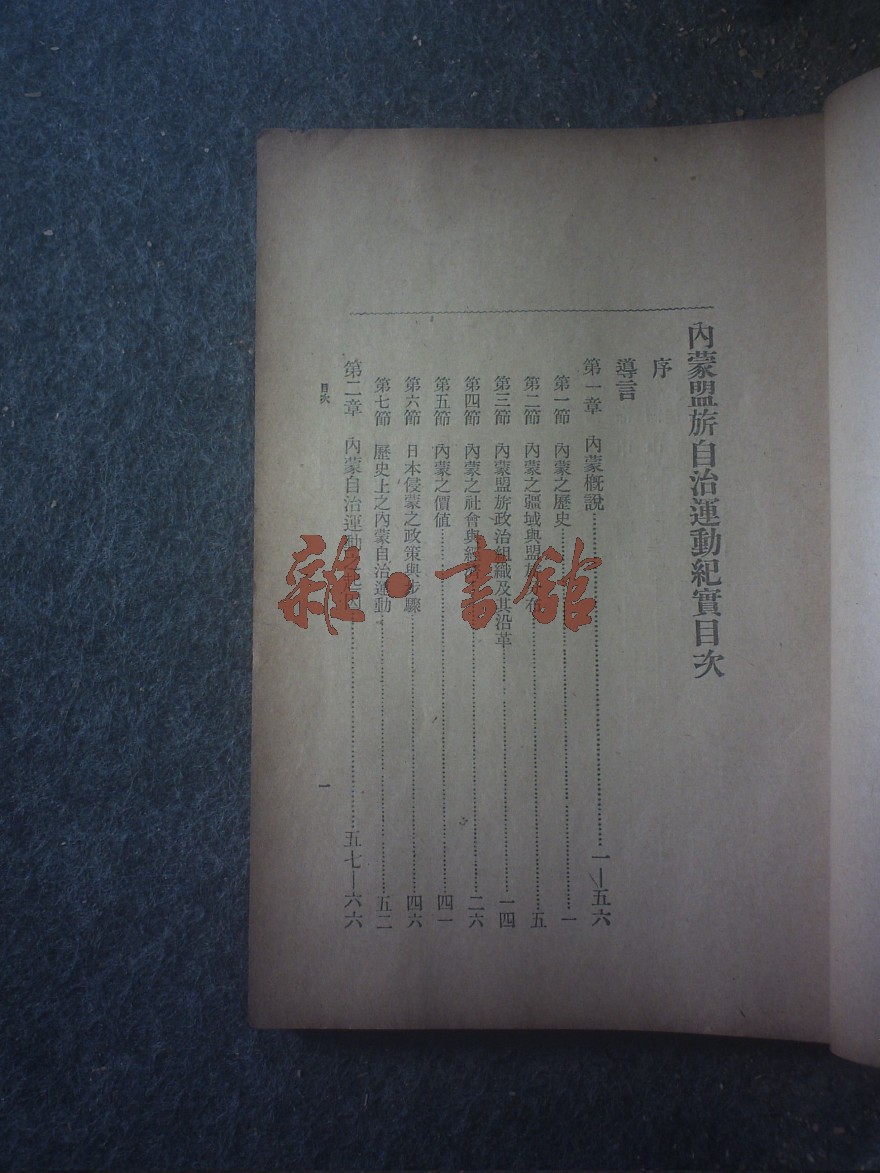 內蒙盟旂自治運動紀實目次
序
導言
第一章 內蒙概說……一—五六
第一節 內蒙之歷史……一
第二節 內蒙之疆域與盟旂……五
第三節 內蒙盟旂政治組織及其沿革……一四
第四節 內蒙之社會與經……二六
第五節 內蒙之價值……四一
第六節 日本侵蒙之政策與步驟……四六
第七節 歷史上之內蒙自治運動……五二
第二章 內蒙自治運動……五七—六六
目次
一
雜·書館